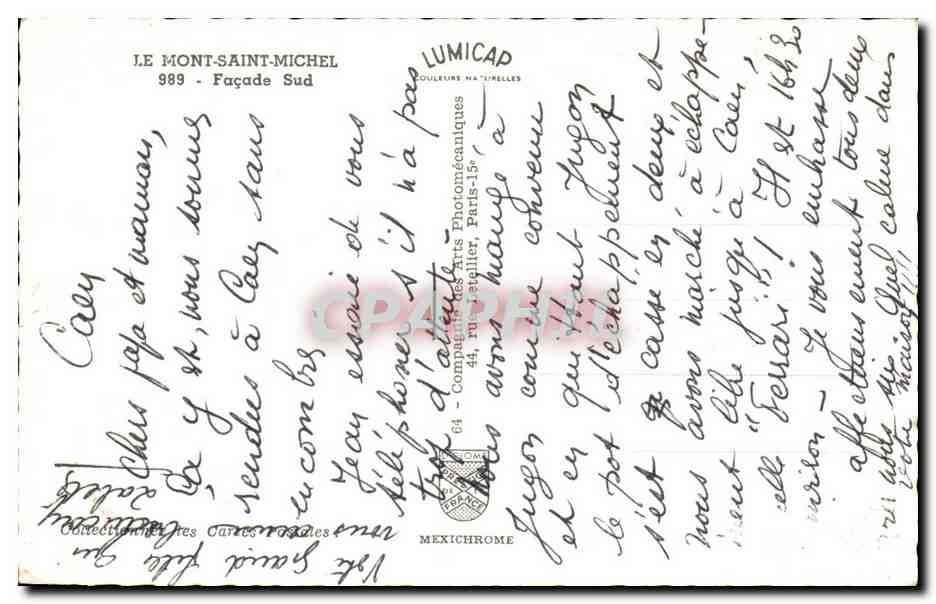 LE MONT-SAINT-MICHEL
989 - Façade Sud
LUMICAP
COULEURS NATURELLES
64 - Compagnie des Arts Photomécaniques
44, rue Letellier, Paris-15e
CPAPHIL
PRESTIGE
DE
FRANCE
MEXICHROME
Collection des Cartes Postales
Caen
Chers papa et maman,
Ça y est, nous sommes
rendus à Caen sans
encombre
Jean essaie de vous
téléphoner s'il n'a pas
trop d'attente
nous avons mangé à
Jugon comme convenu
et en quittant Jugon
le pot d'échappement
s'est cassé en deux et
nous avons marché à échappe-
ment libre jusqu'à Caen
"Ferrari"! Il est 16h30
environ - Je vous embrasse
affectueusement tous deux
Quel calme dans
votre maison!!!
Votre grande fille qui
vous